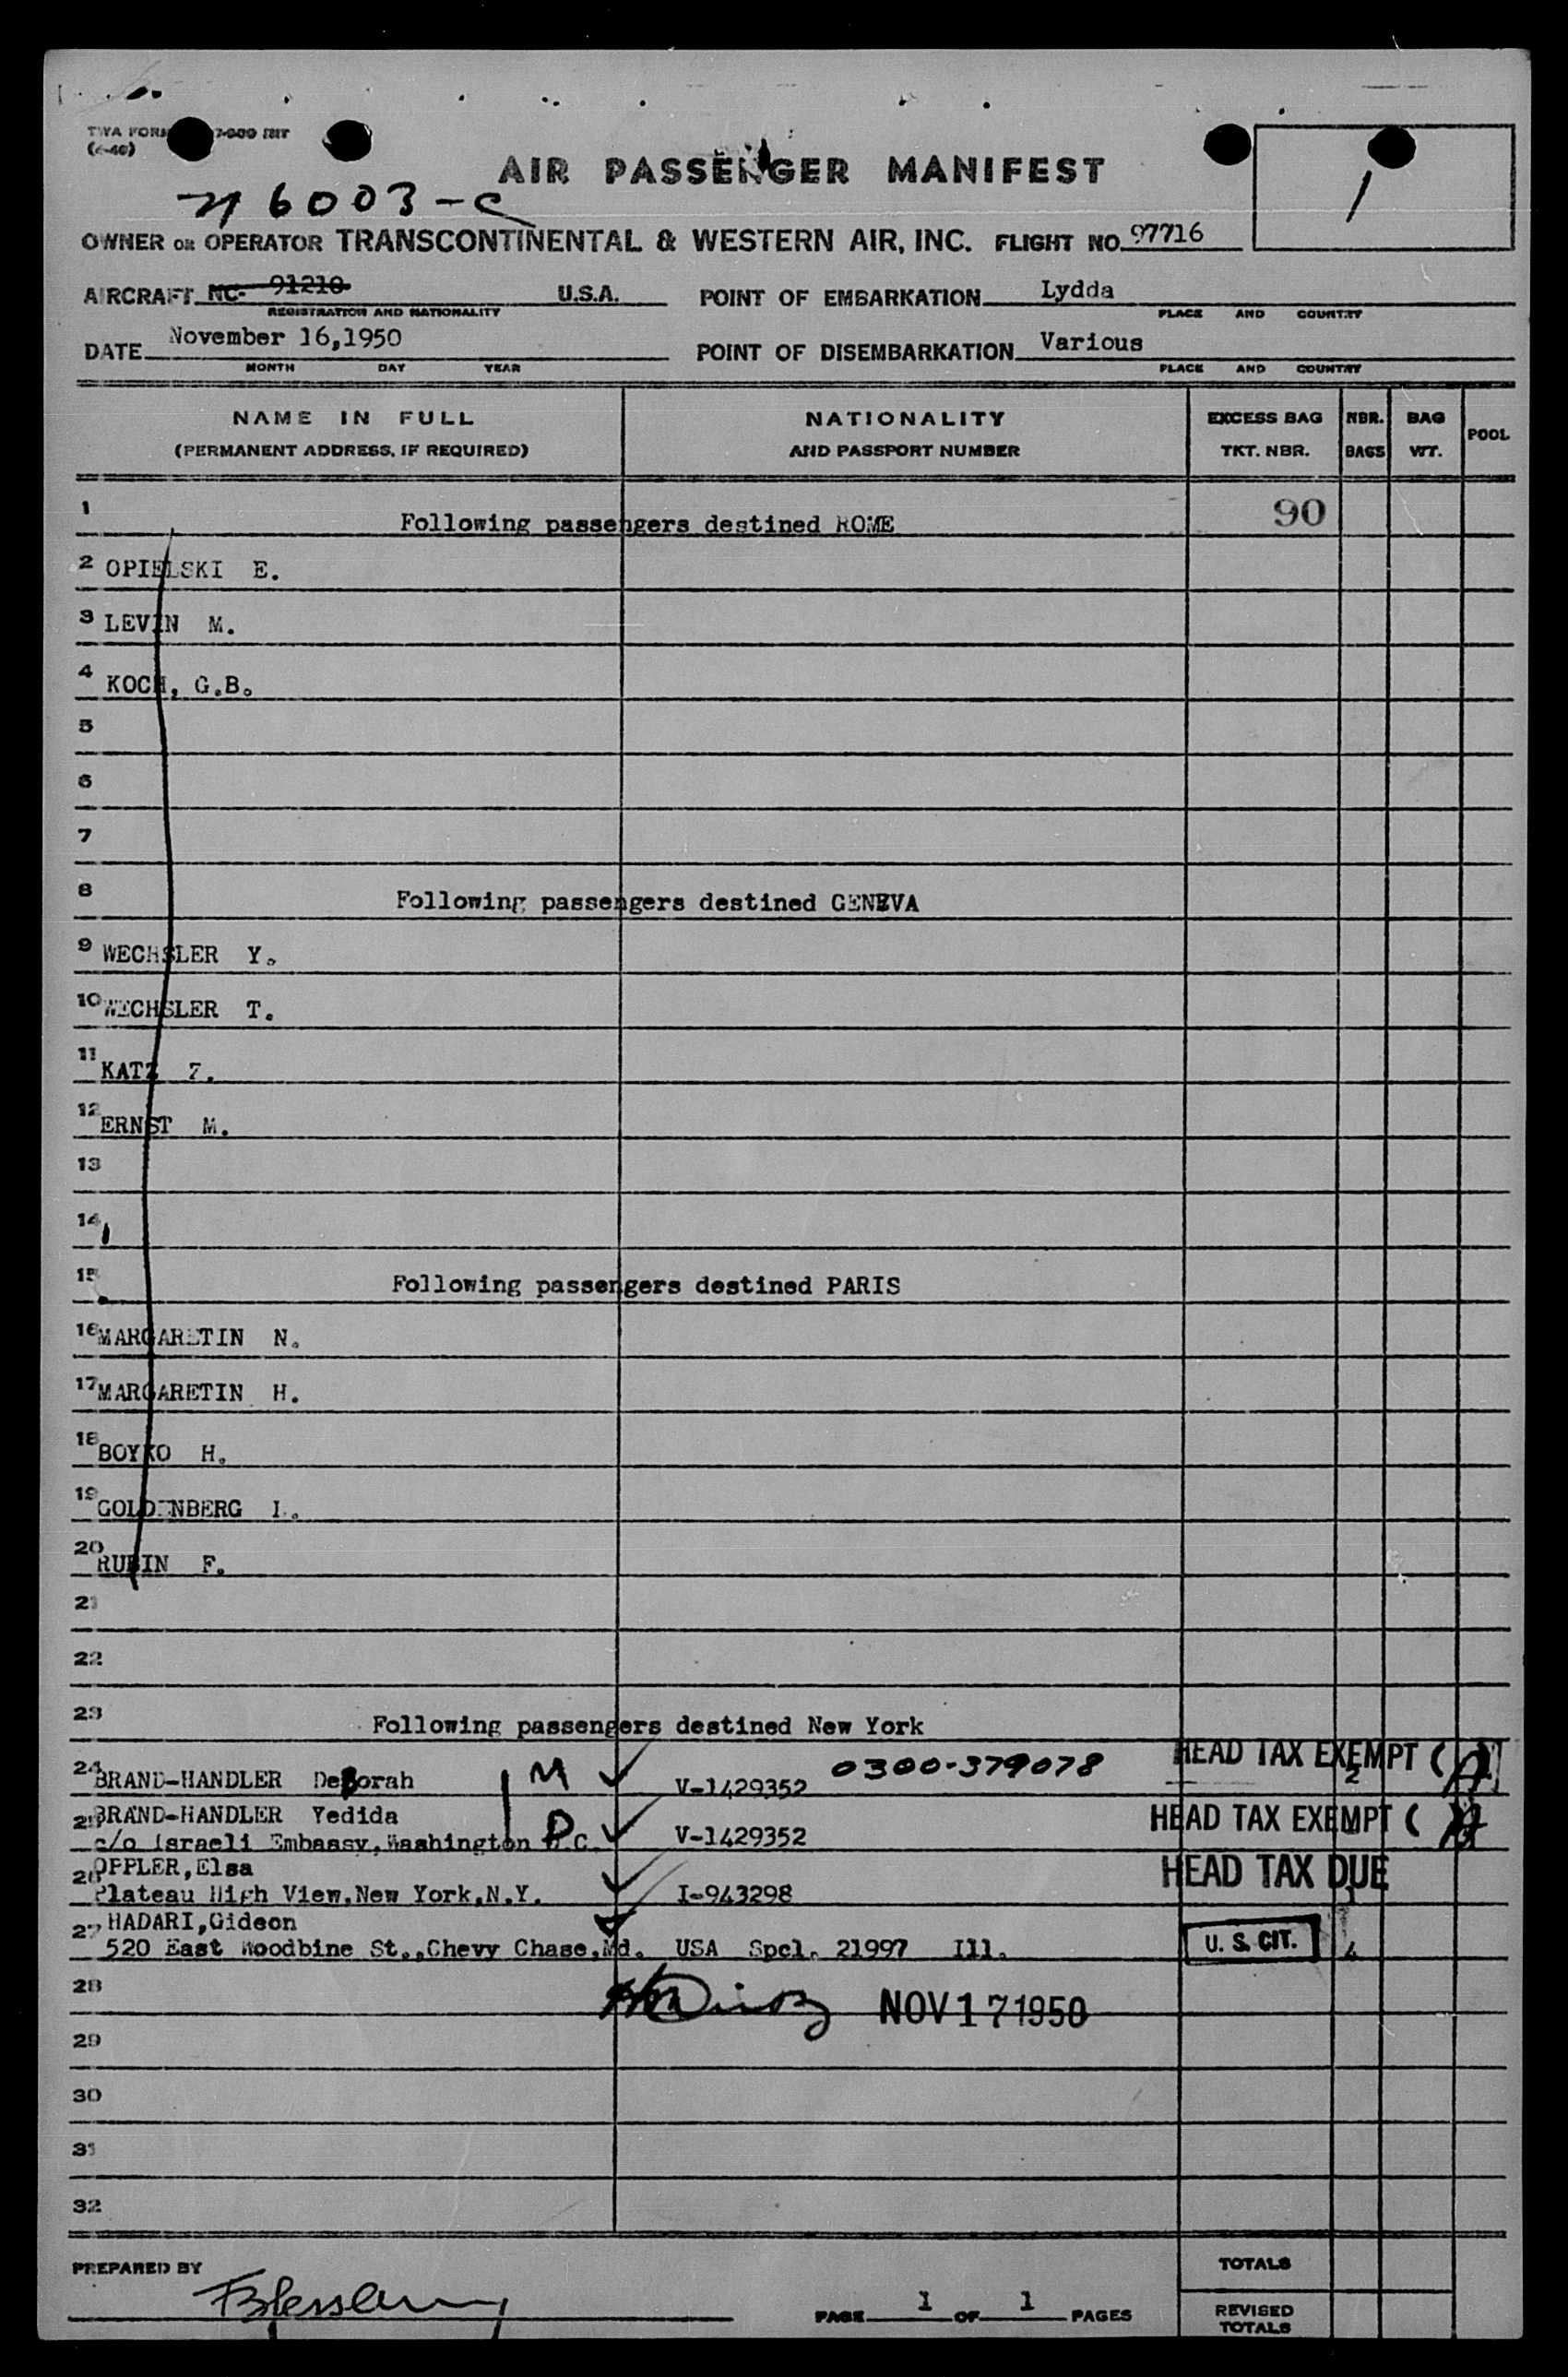 TWA FORM
(4-46)
AIR PASSENGER MANIFEST
1
N 6003-C
OWNER OR OPERATOR TRANSCONTINENTAL & WESTERN AIR, INC. FLIGHT NO. 97716
AIRCRAFT NC- 91210 U.S.A. POINT OF EMBARKATION Lydda
REGISTRATION AND NATIONALITY PLACE AND COUNTRY
DATE November 16,1950 POINT OF DISEMBARKATION Various
MONTH DAY YEAR PLACE AND COUNTRY
NAME IN FULL NATIONALITY EXCESS BAG NBR. BAG POOL
(PERMANENT ADDRESS, IF REQUIRED) AND PASSPORT NUMBER TKT. NBR. BAGS WT.
1 Following passengers destined ROME 90
2 OPIELSKI E.
3 LEVIN M.
4 KOCH, G.B.
5
6
7
8 Following passengers destined GENEVA
9 WECHSLER Y.
10 WECHSLER T.
11 KATZ Z.
12 ERNST M.
13
14
15 Following passengers destined PARIS
16 MARGARETIN N.
17 MARGARETIN H.
18 BOYKO H.
19 GOLDENBERG I.
20 RUBIN F.
21
22
23 Following passengers destined New York
24 BRAND-HANDLER Deborah M V-1429352 0300-379078 HEAD TAX EXEMPT ( ) 2
25 BRAND-HANDLER Yedida
c/o Israeli Embassy,Washington D.C. V-1429352 HEAD TAX EXEMPT ( )
26 OPPLER,Elsa
Plateau High View,New York,N.Y. I-943298 HEAD TAX DUE 1
27 HADARI,Gideon
520 East Woodbine St.,Chevy Chase,Md. USA Spcl. 21997 Ill. U. S. CIT. 4
28 NOV 17 1950
29
30
31
32
PREPARED BY TOTALS
PAGE 1 OF 1 PAGES REVISED
TOTALS